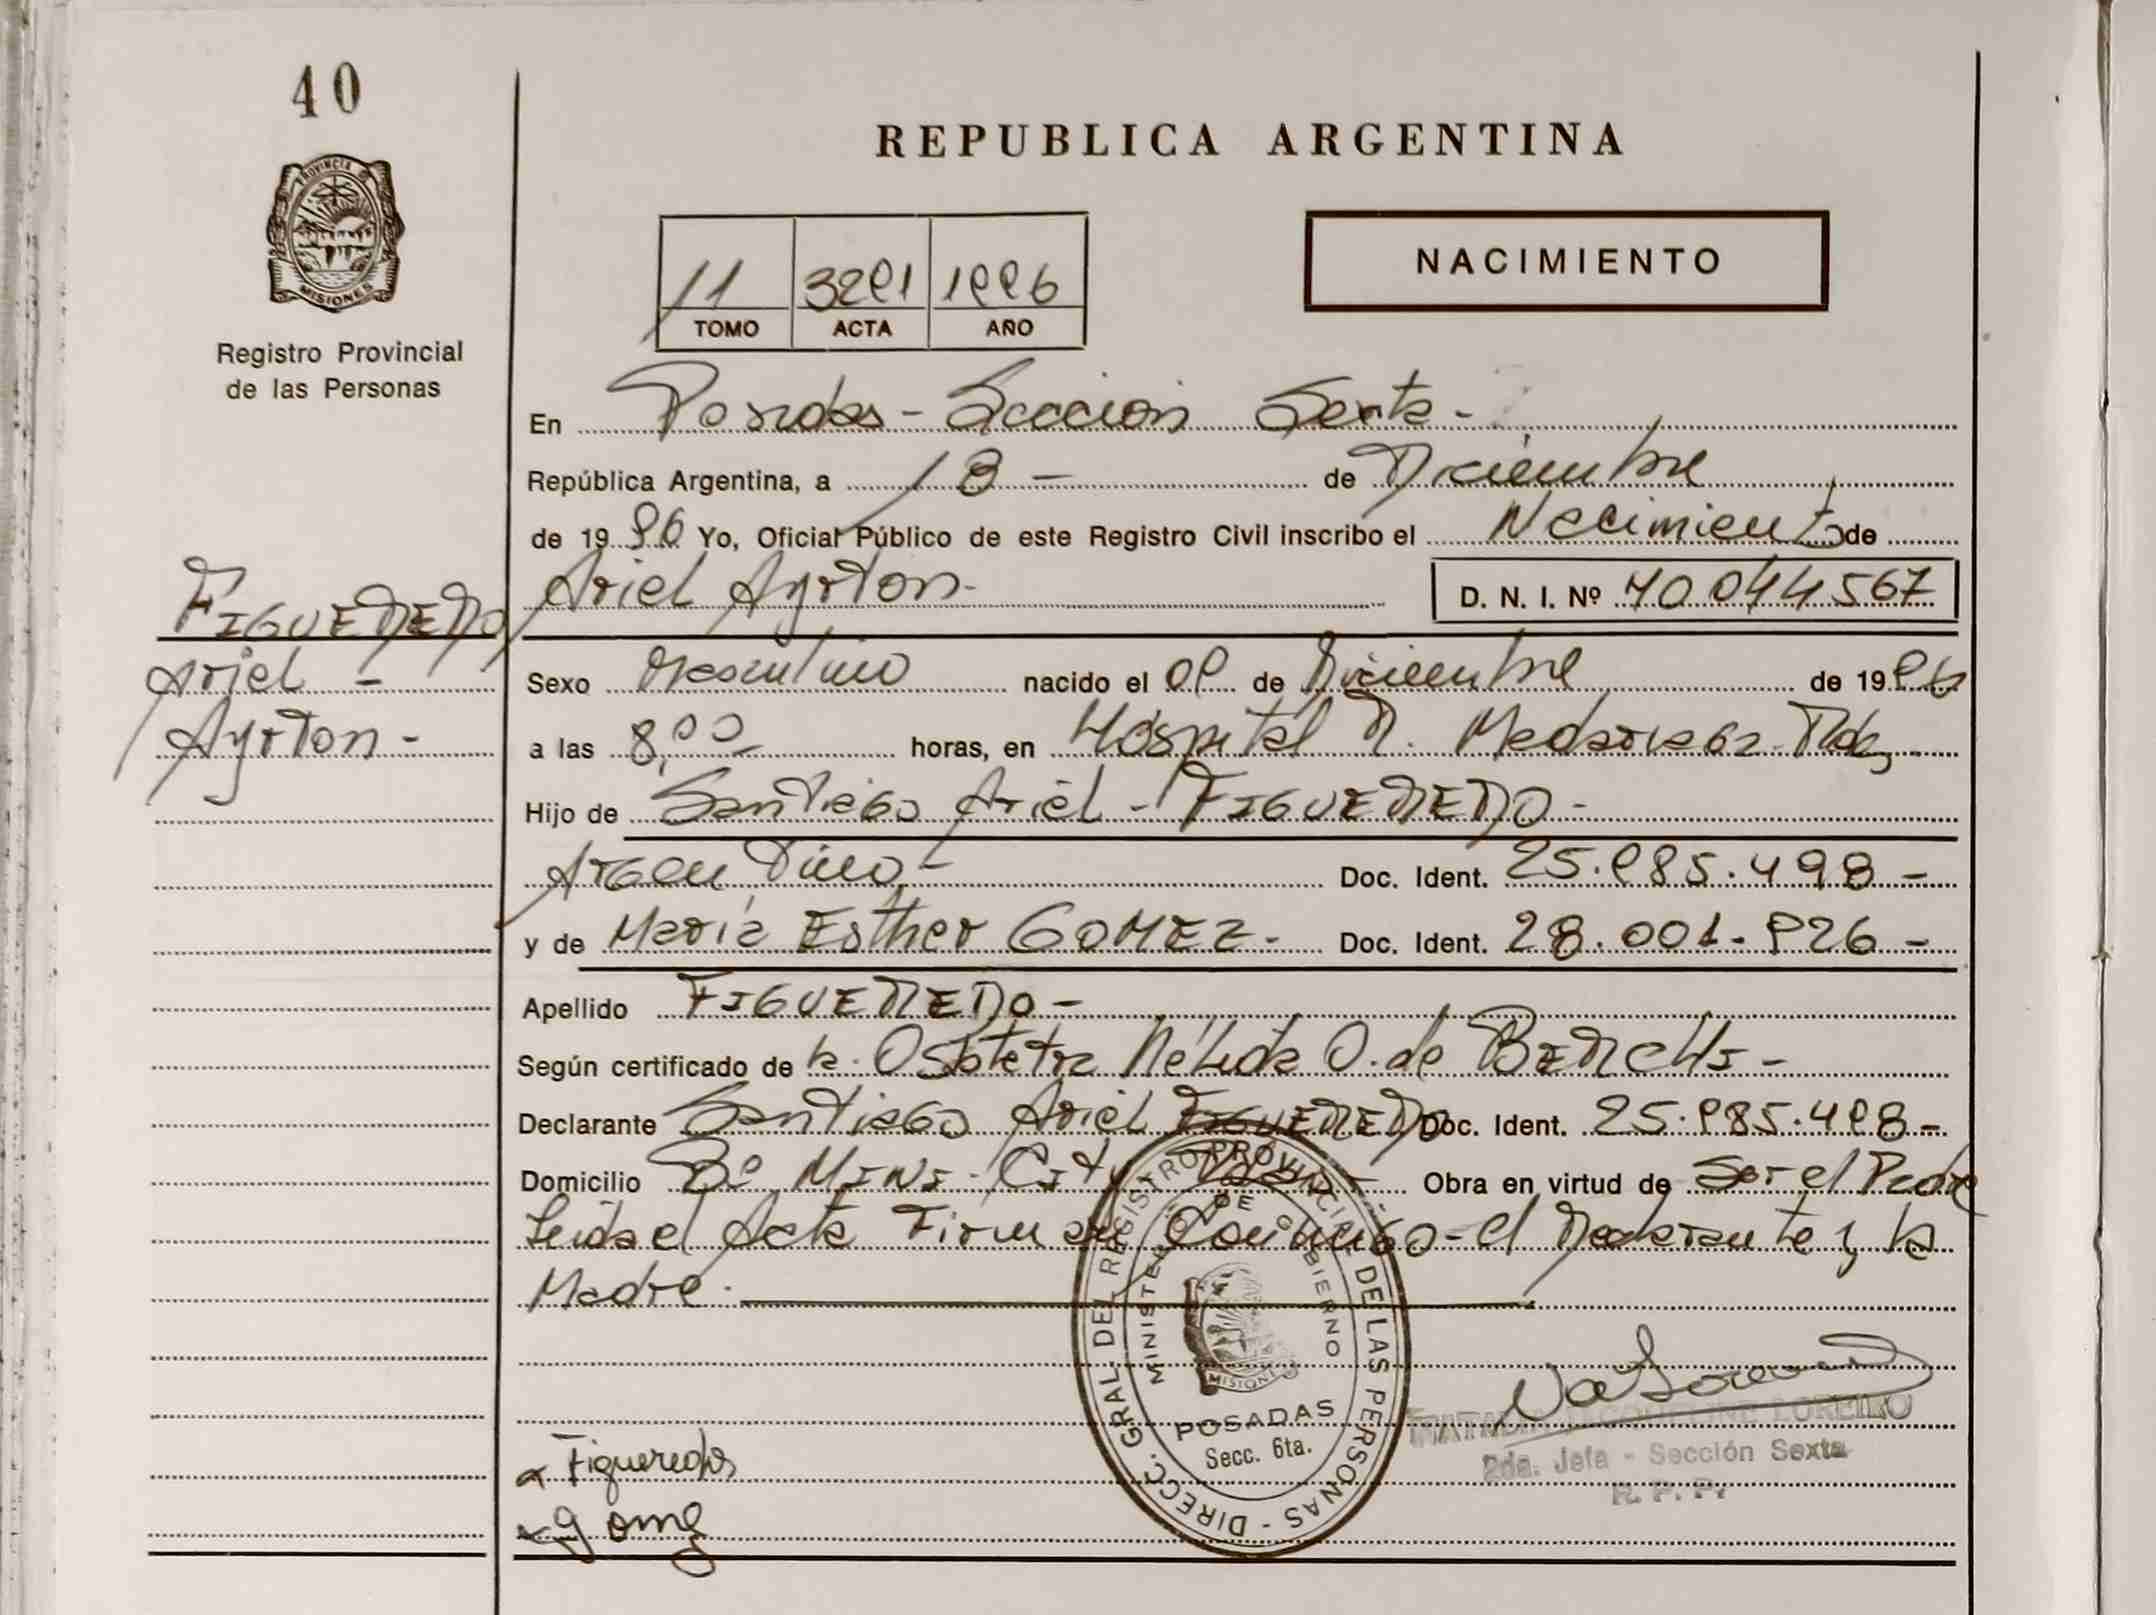 40
REPUBLICA ARGENTINA
PROVINCIA DE
MISIONES
Registro Provincial
de las Personas
NACIMIENTO
11 3291 1996
TOMO ACTA AÑO
En Posadas - Seccion Sexta -
República Argentina, a 13 - de Diciembre
de 1996 Yo, Oficial Público de este Registro Civil inscribo el Nacimiento de
FIGUEREDO Ariel Ayrton - D. N. I. Nº 40.044.567
Ariel - Sexo Masculino nacido el 09 de Diciembre de 1996
Ayrton - a las 8,00 horas, en Hospital R. Madariaga Pdas -
Hijo de Santiago Ariel - FIGUEREDO -
Argentino - Doc. Ident. 25.985.498 -
y de Maria Esther GOMEZ - Doc. Ident. 28.001.926 -
Apellido FIGUEREDO -
Según certificado de la Obstetra Nélida O. de
Declarante Santiago Ariel FIGUEREDO Doc. Ident. 25.985.498 -
Domicilio Bº MINI - City Pdas - Obra en virtud de Ser el Padre
Leida el Acta Firman Conmigo - el Declarante y la
Madre.
DIRECC. GRAL DEL REGISTRO PROVINCIAL DE LAS PERSONAS -
MINISTERIO DE GOBIERNO
MISIONES
POSADAS
Secc. 6ta.
JACQUELINE LOREIRO
2da. Jefa - Sección Sexta
R. P. P.
Figueredo
Gomez